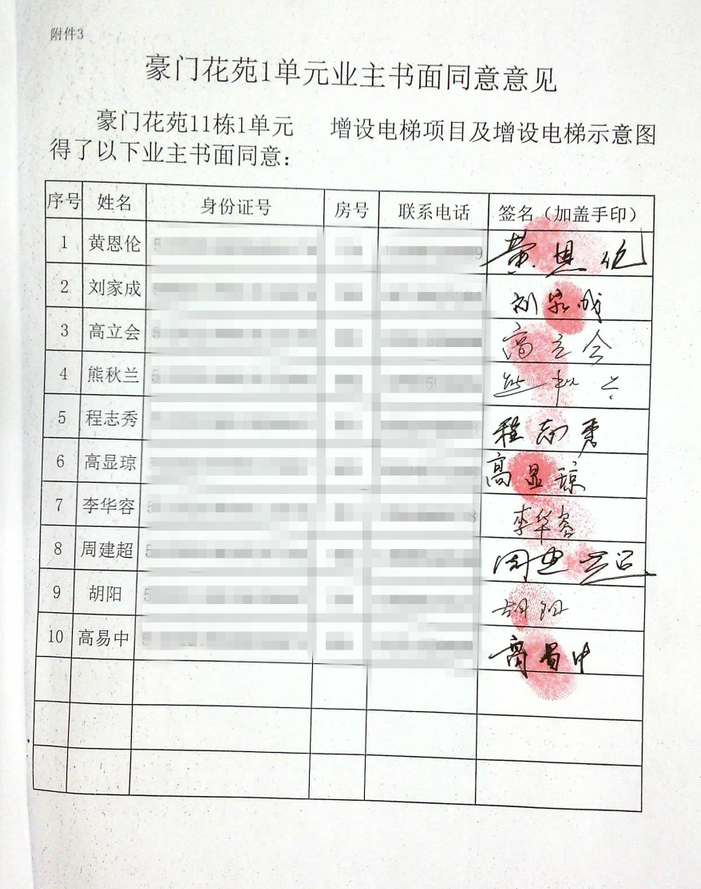 附件3
豪门花苑1单元业主书面同意意见
豪门花苑11栋1单元 增设电梯项目及增设电梯示意图
得了以下业主书面同意：
序号 姓名 身份证号 房号 联系电话 签名（加盖手印）
1 黄恩伦 黄恩伦
2 刘家成 刘家成
3 高立会 高立会
4 熊秋兰 熊秋兰
5 程志秀 程志秀
6 高显琼 高显琼
7 李华容 李华容
8 周建超 周建超
9 胡阳 胡阳
10 高易中 高易中